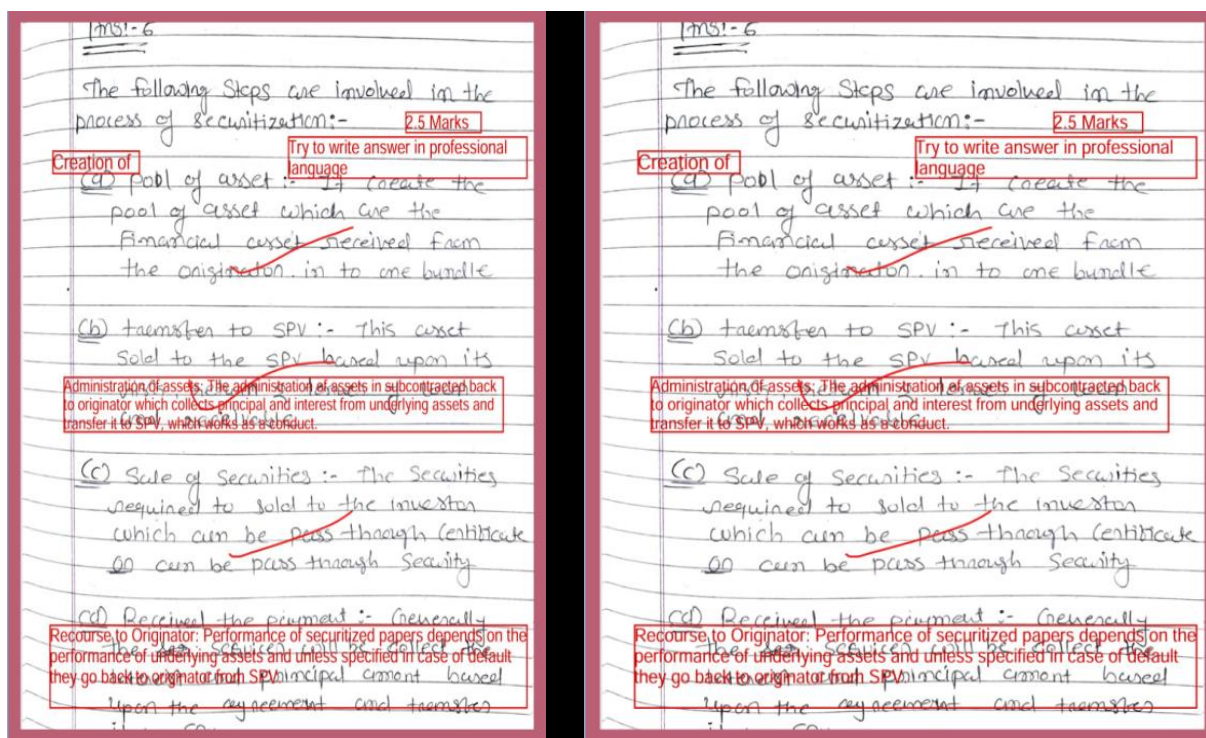 Ans:- 6
The following Steps are involved in the
process of Securitization:-
2.5 Marks
Try to write answer in professional
language
Creation of
(a) Pool of asset :- It create the
pool of asset which are the
Financial asset received from
the originator in to one bundle
(b) transfer to SPV :- This asset
Sold to the SPV based upon its
Administration of assets: The administration of assets in subcontracted back
to originator which collects principal and interest from underlying assets and
transfer it to SPV, which works as a conduct.
(c) Sale of Securities :- The Securities
required to sold to the investor
which can be Pass through Centificate
or can be pass through Security
(d) Received the payment :- Generally
Recourse to Originator: Performance of securitized papers depends on the
performance of underlying assets and unless specified in case of default
they go back to originator from SPV
principal amont based
upon the agreement and transfer
Ans:- 6
The following Steps are involved in the
process of Securitization:-
2.5 Marks
Try to write answer in professional
language
Creation of
(a) Pool of asset :- It create the
pool of asset which are the
Financial asset received from
the originator in to one bundle
(b) transfer to SPV :- This asset
Sold to the SPV based upon its
Administration of assets: The administration of assets in subcontracted back
to originator which collects principal and interest from underlying assets and
transfer it to SPV, which works as a conduct.
(c) Sale of Securities :- The Securities
required to sold to the investor
which can be Pass through Centificate
or can be pass through Security
(d) Received the payment :- Generally
Recourse to Originator: Performance of securitized papers depends on the
performance of underlying assets and unless specified in case of default
they go back to originator from SPV
principal amont based
upon the agreement and transfer